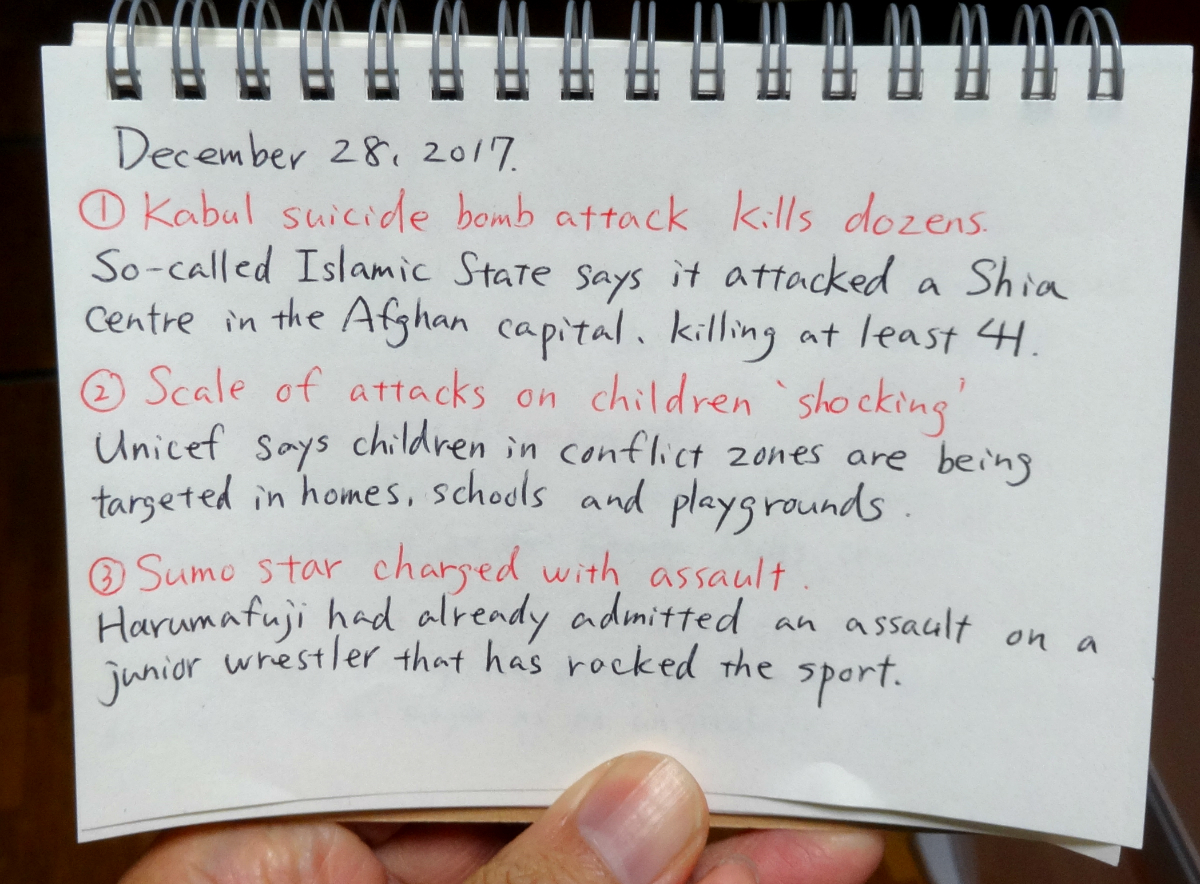 December 28, 2017.
① Kabul suicide bomb attack kills dozens.
So-called Islamic State says it attacked a Shia
centre in the Afghan capital, killing at least 41.
② Scale of attacks on children 'shocking'
Unicef says children in conflict zones are being
targeted in homes, schools and playgrounds.
③ Sumo star charged with assault.
Harumafuji had already admitted an assault on a
junior wrestler that has rocked the sport.